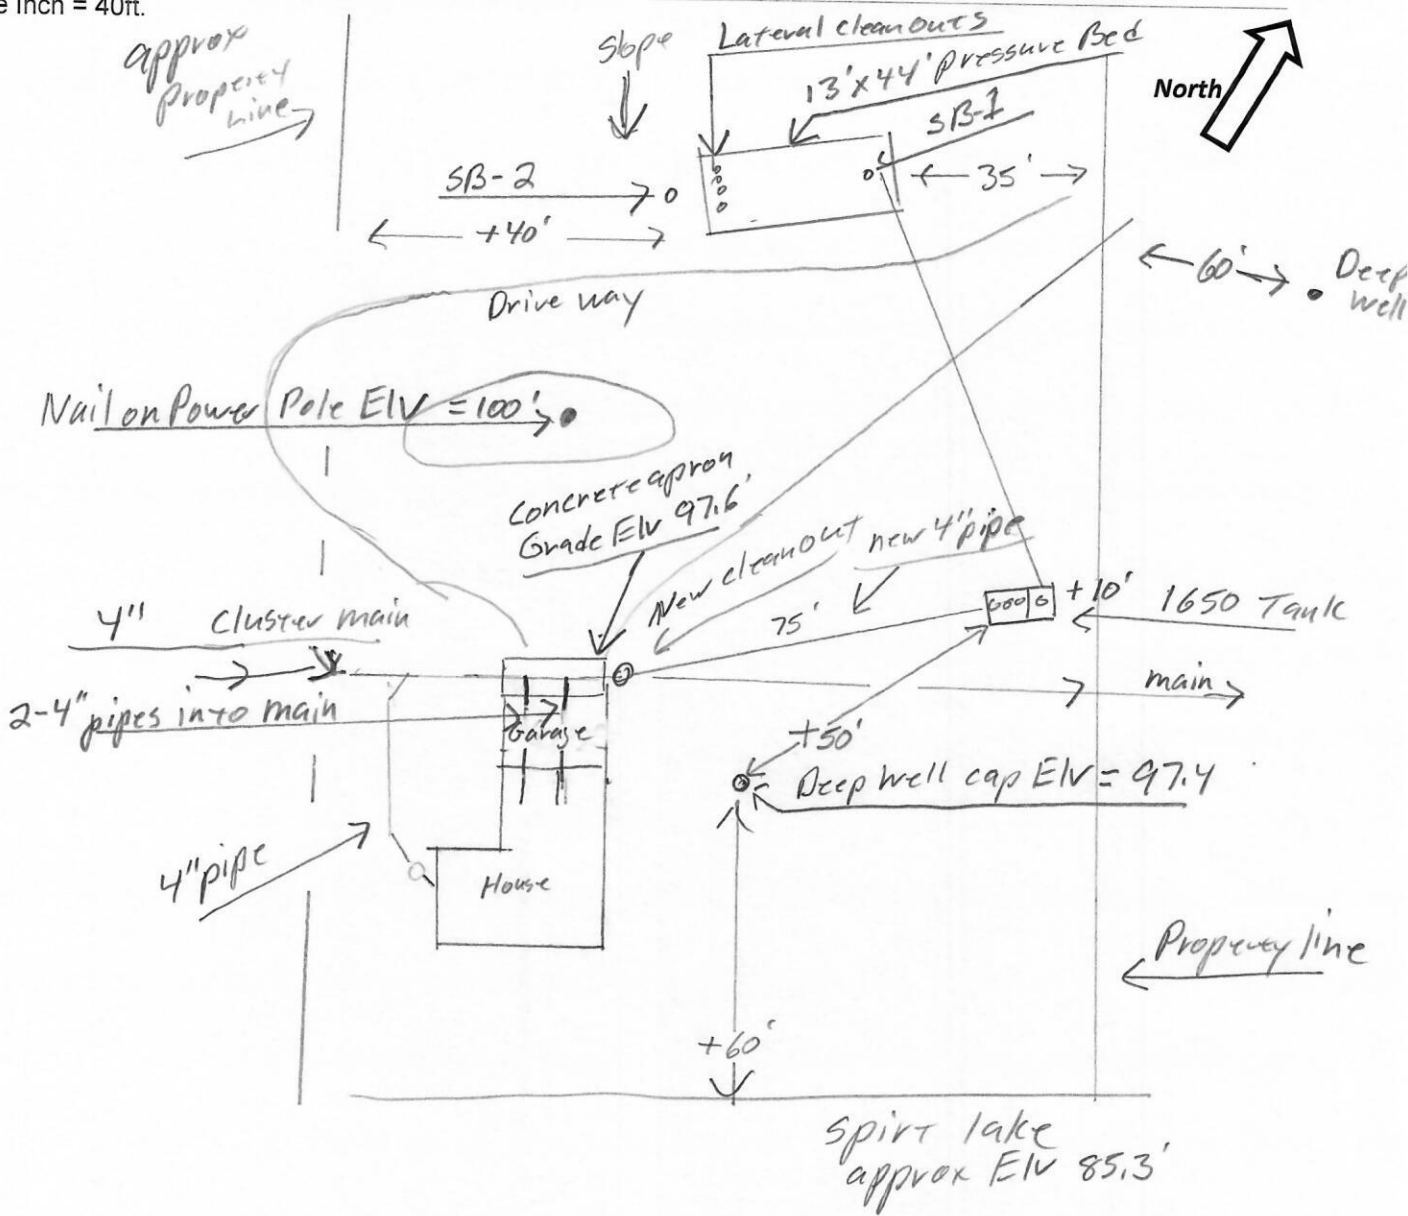 e Inch = 40ft.
approx
Property
Line
Slope
Lateral cleanouts
13'x44' Pressure Bed
SB-1
North
SB-2
35'
+40'
60'
Deep
Well
Drive way
Nail on Power Pole Elv = 100'
Concrete apron
Grade Elv 97.6'
New cleanout
new 4" pipe
75'
+10'
1650 Tank
4" Cluster main
main
2-4" pipes into main
Garage
+50'
Deep Well cap Elv = 97.4
4" pipe
House
Property line
+60'
Spirt lake
approx Elv 85.3'